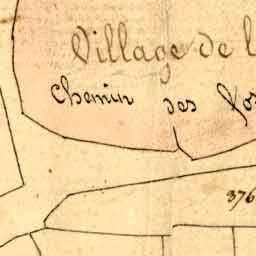 Village de l
Chemin des
376